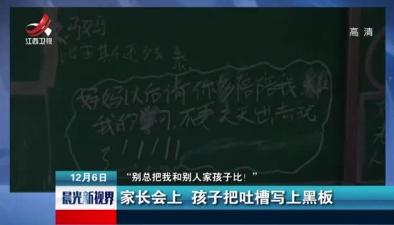 江西卫视
高清
妈妈以后请你多陪陪我
我的学习,不要天天出去玩
了!!!!!
12月6日
“别总把我和别人家孩子比!”
晨光新视界
家长会上 孩子把吐槽写上黑板